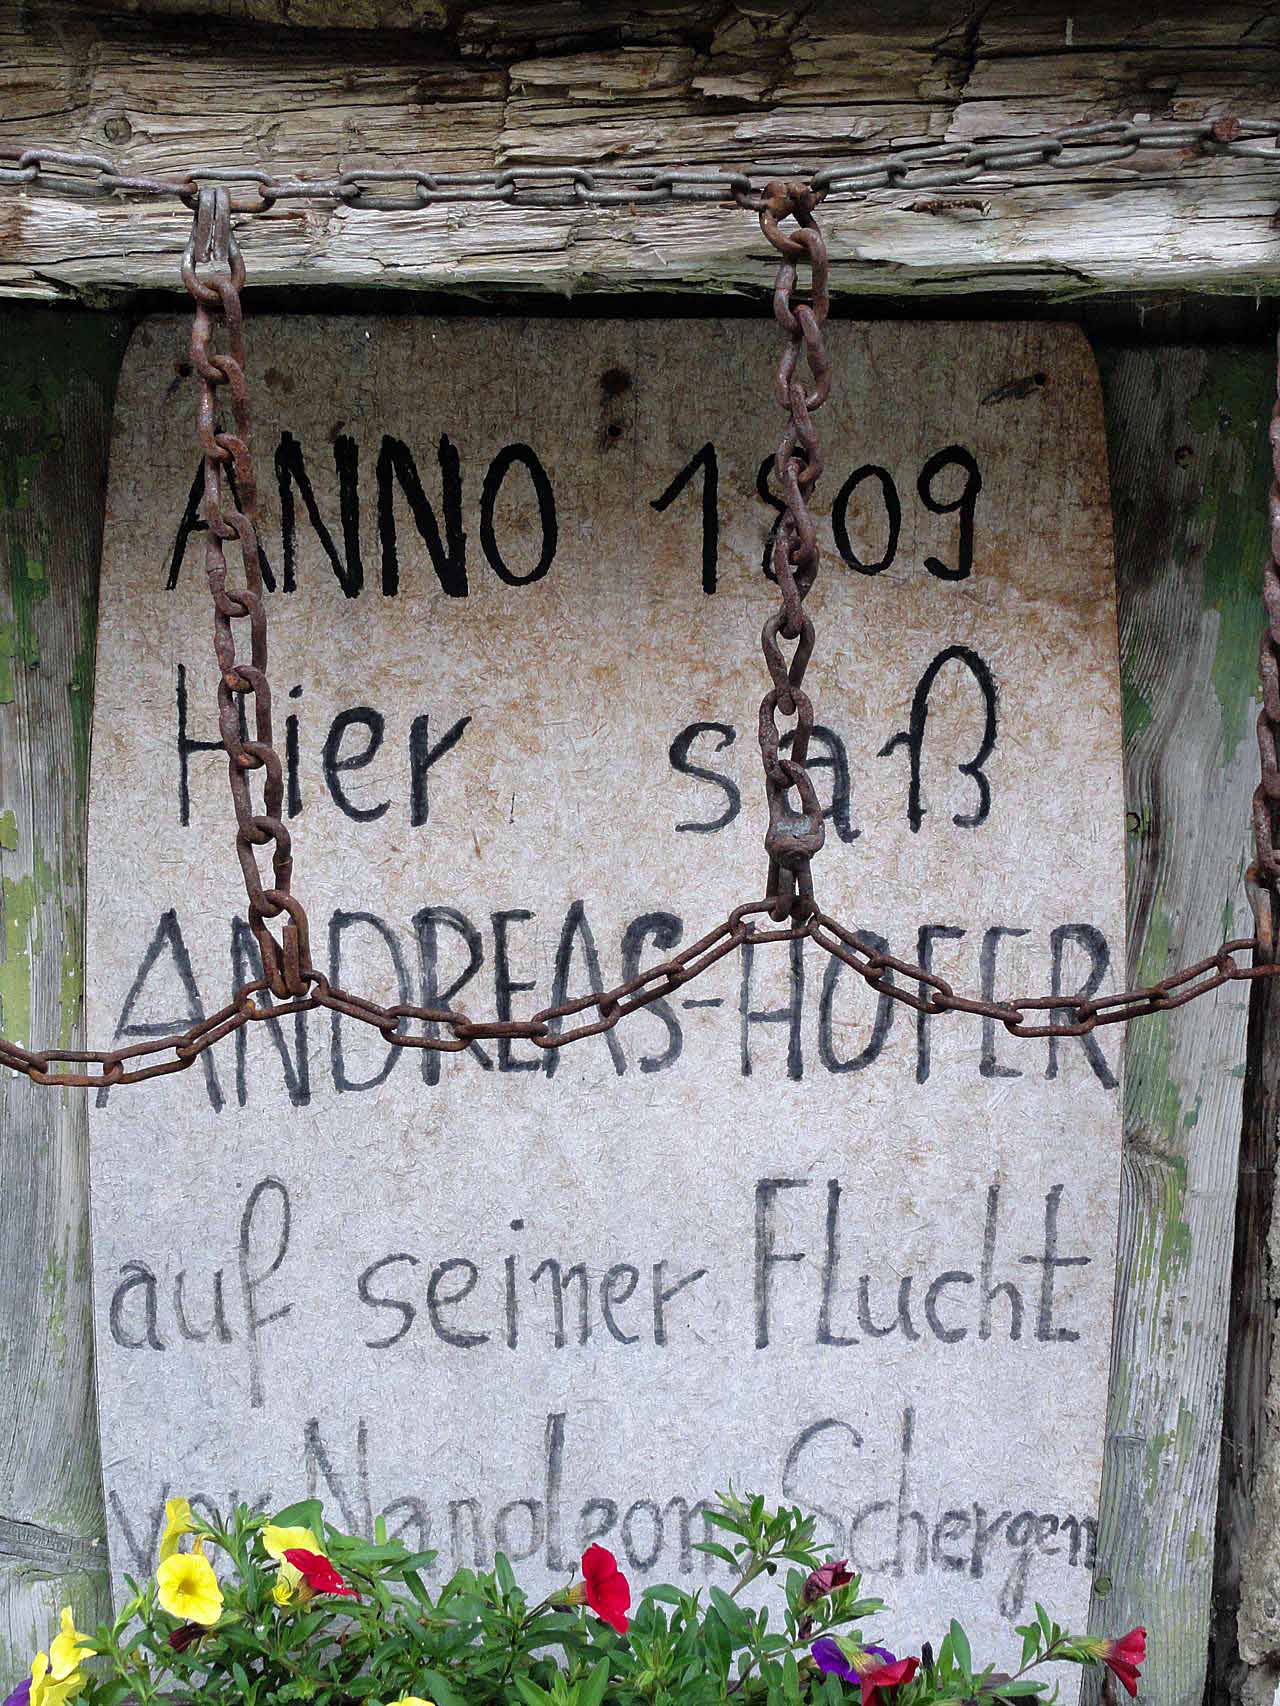 ANNO 1809
Hier saß
ANDREAS-HOFER
auf seiner Flucht
vor Napoleon Schergen